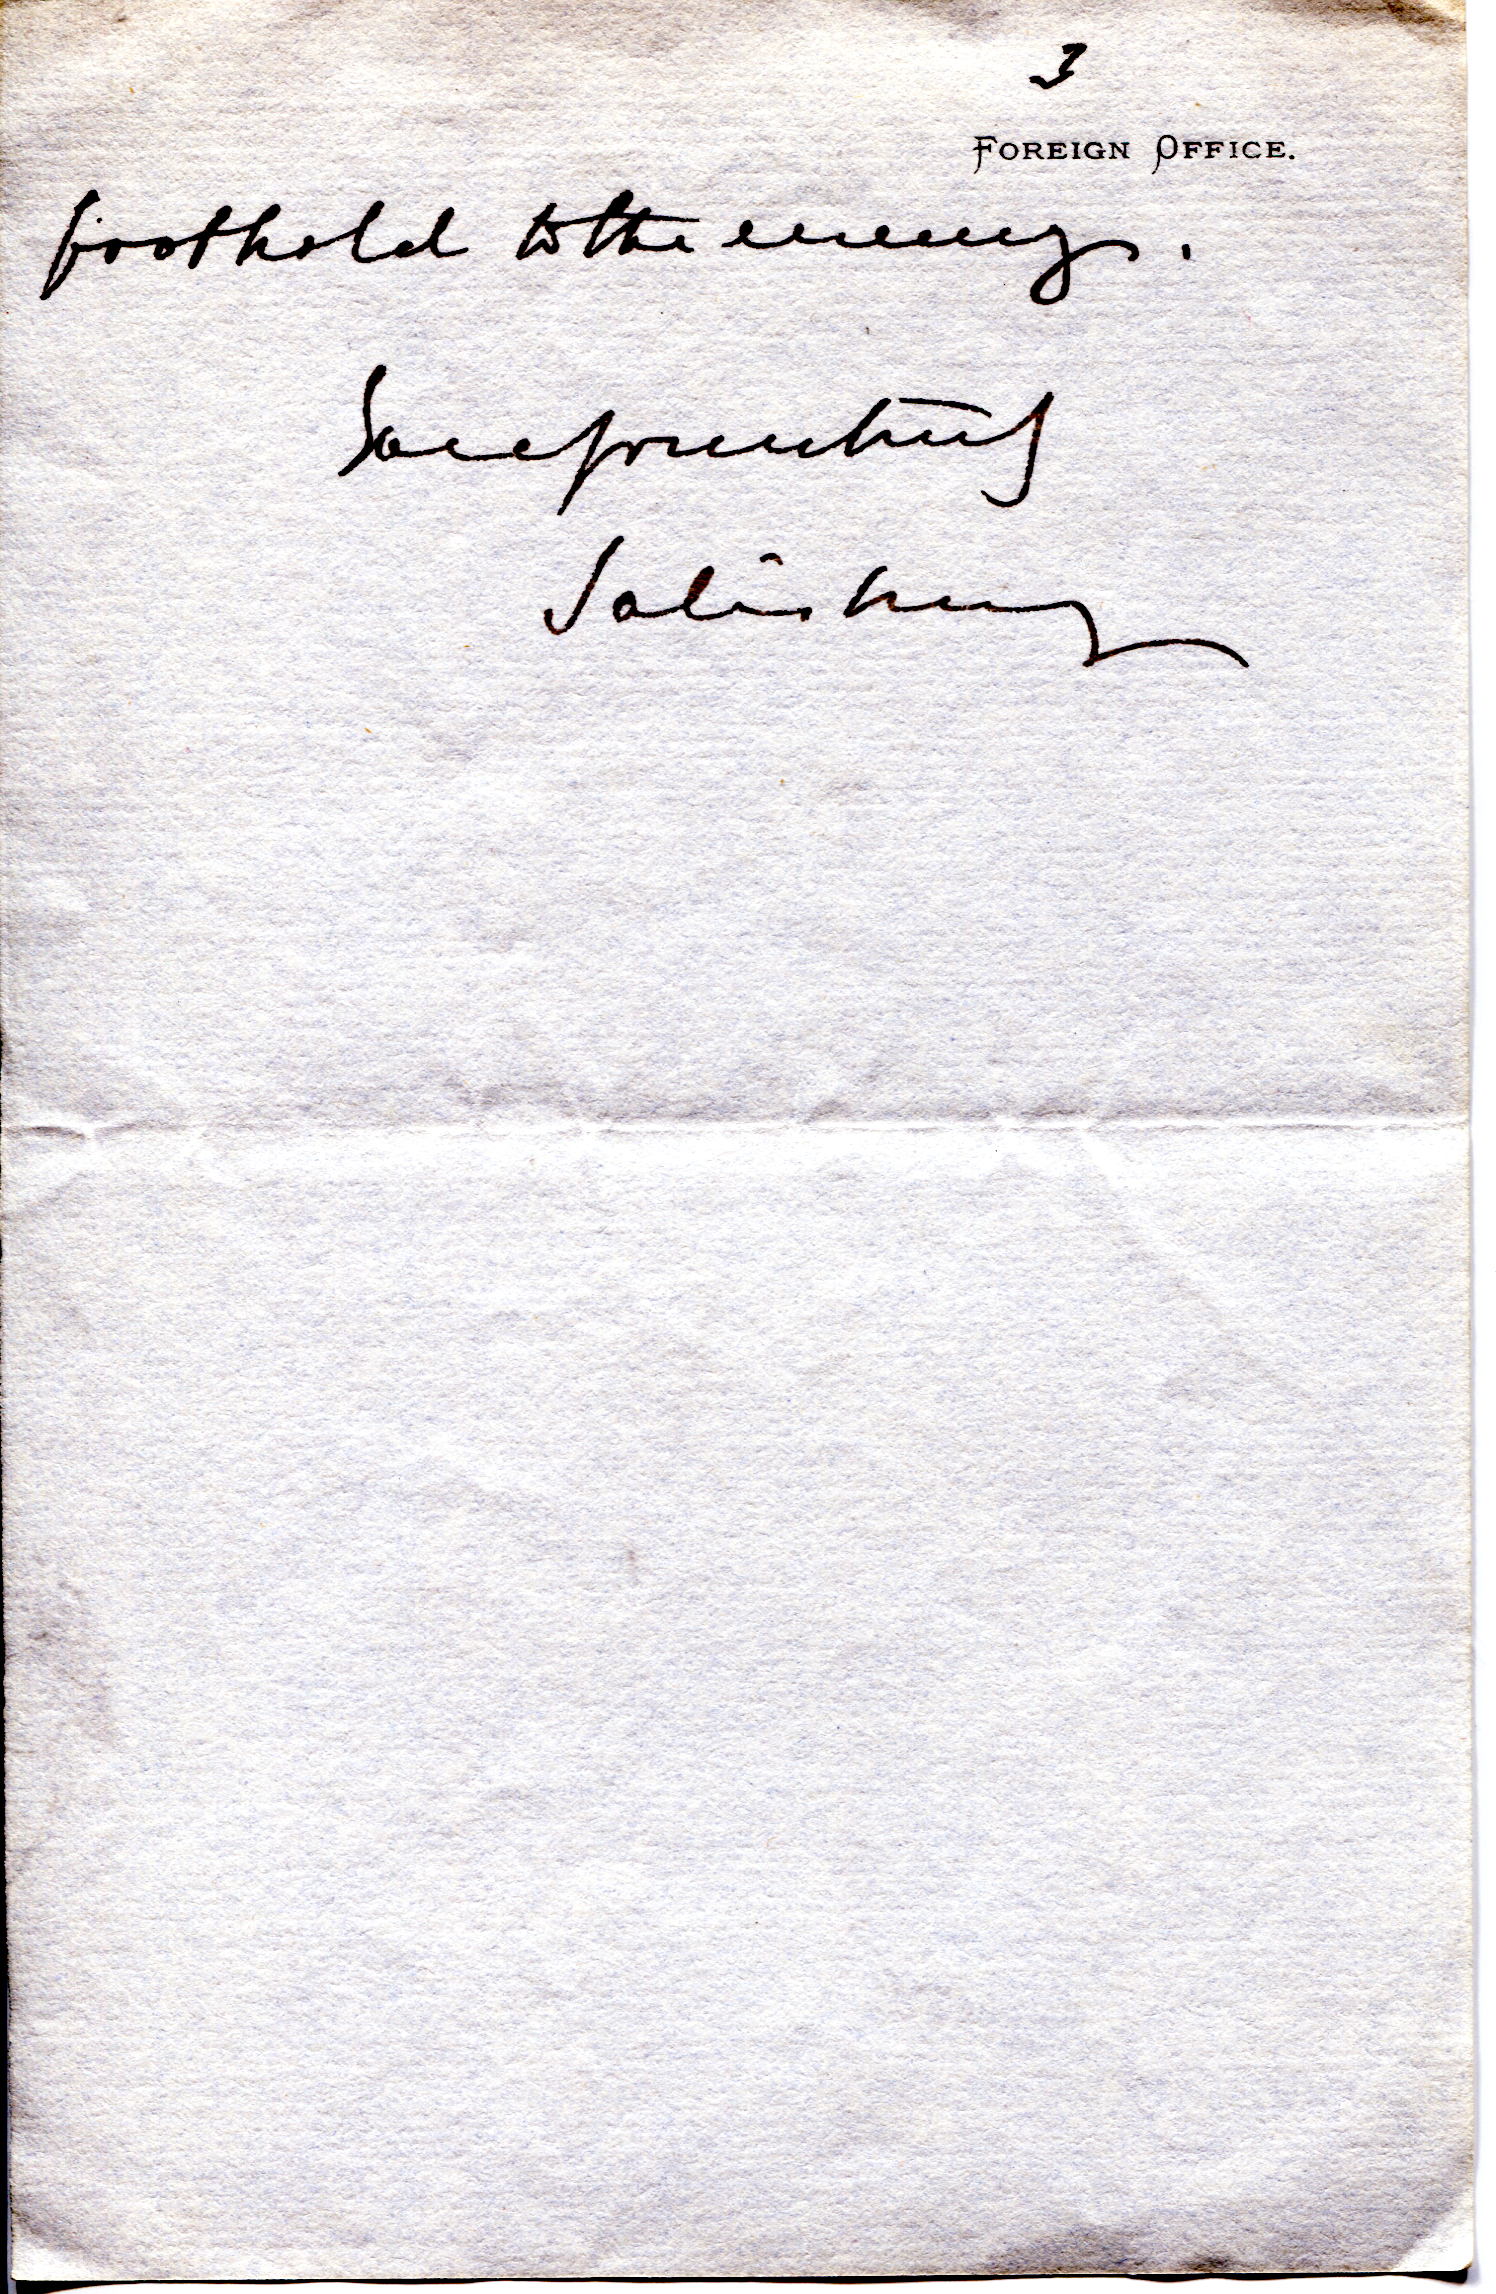 3
FOREIGN OFFICE.
foothold to the enemy.
Yours truly
Salisbury